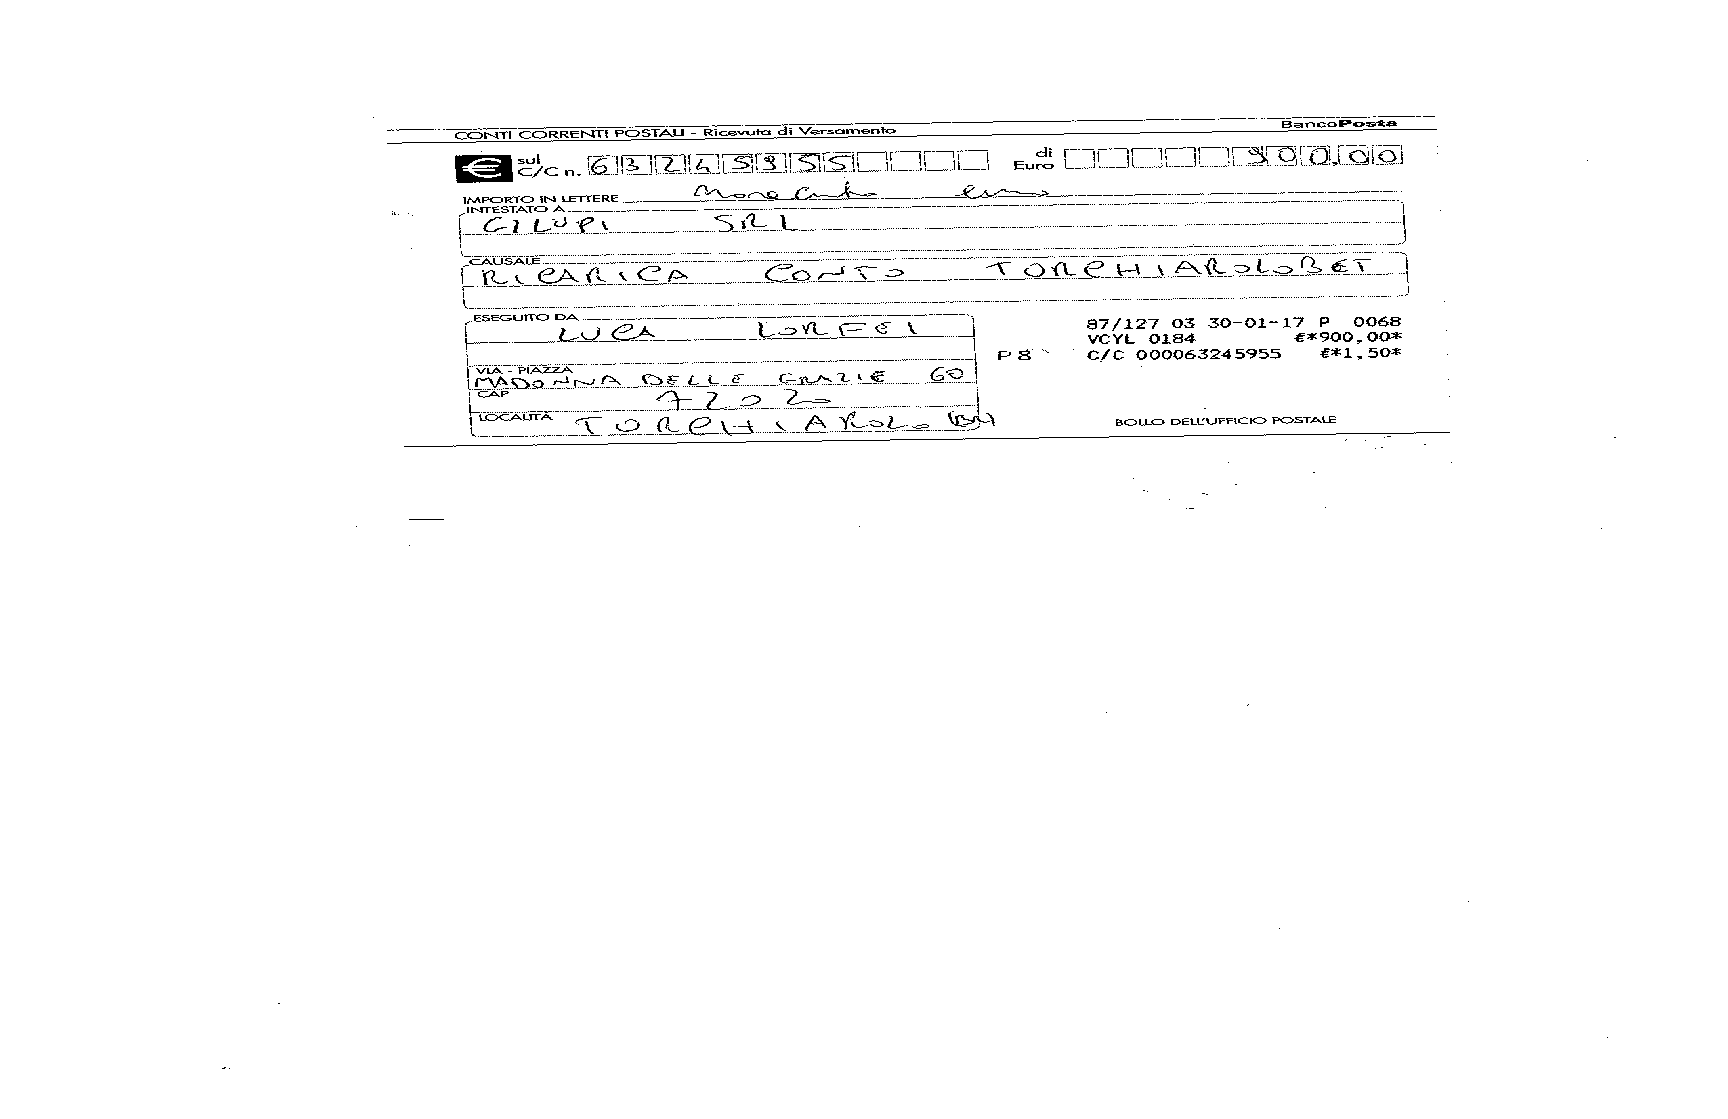 CONTI CORRENTI POSTALI - Ricevuta di Versamento BancoPosta
€ sul C/C n. 63245955 di Euro 900,00
IMPORTO IN LETTERE Novecento euro
INTESTATO A
GILUPI SRL
CAUSALE
RICARICA CONTO TORCHIAROLOBET
ESEGUITO DA
LUCA LORFEI
VIA - PIAZZA
MADONNA DELLE GRAZIE 60
CAP
72020
LOCALITÀ TORCHIAROLO (BR)
87/127 03 30-01-17 P 0068
VCYL 0184 €*900,00*
P 8 C/C 000063245955 €*1,50*
BOLLO DELL'UFFICIO POSTALE